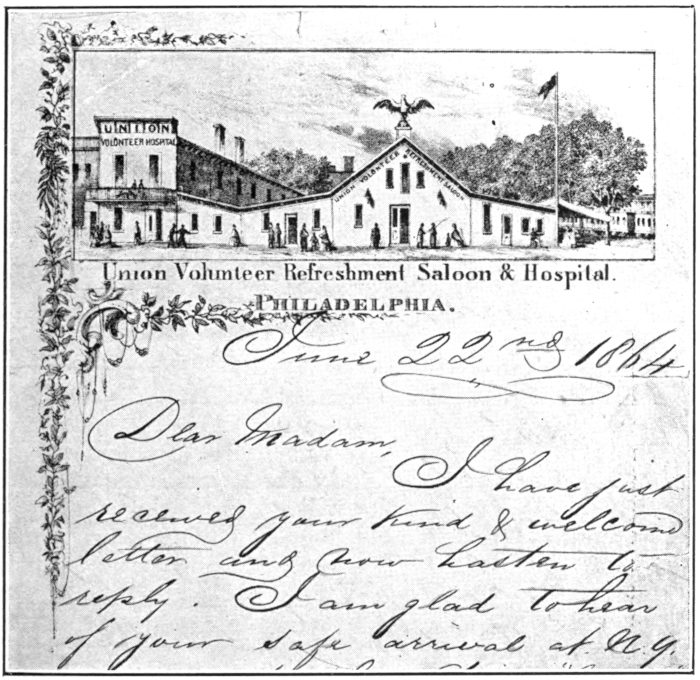 UNION
VOLUNTEER HOSPITAL
UNION VOLUNTEER REFRESHMENT SALOON
Union Volunteer Refreshment Saloon & Hospital.
PHILADELPHIA.
June 22nd 1864
Dear Madam,
I have just
received your kind & welcome
letter and now hasten to
reply. I am glad to hear
of your safe arrival at N.Y.